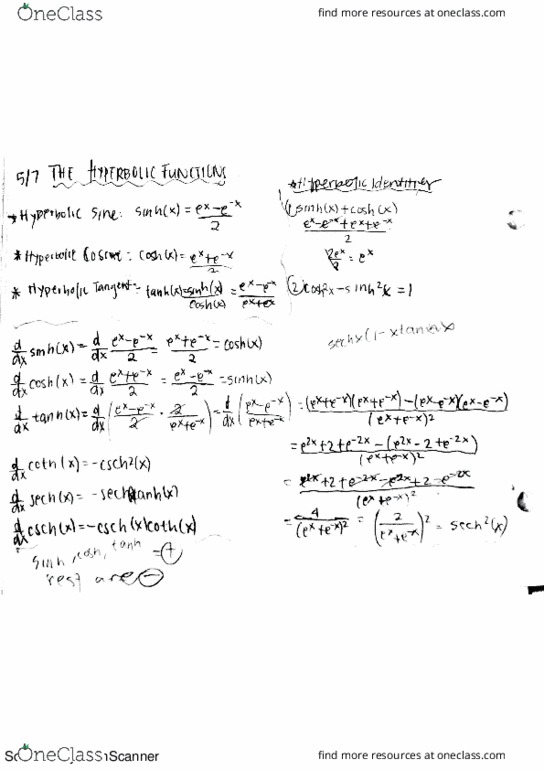 OneClass
find more resources at oneclass.com
5/7 THE HYPERBOLIC FUNCTIONS
→ Hyperbolic Sine: sinh(x) = e^x - e^-x / 2
* Hyperbolic Cosine: cosh(x) = e^x + e^-x / 2
* Hyperbolic Tangent: tanh(x) = sinh(x) / cosh(x) = e^x - e^-x / e^x + e^-x
* Hyperbolic Identities
(1) sinh(x) + cosh(x)
e^x - e^-x + e^x + e^-x / 2
2e^x / 2 = e^x
(2) cosh²x - sinh²x = 1
d/dx sinh(x) = d/dx e^x - e^-x / 2 = e^x + e^-x / 2 = cosh(x)
d/dx cosh(x) = d/dx e^x + e^-x / 2 = e^x - e^-x / 2 = sinh(x)
d/dx tanh(x) = d/dx (e^x - e^-x / 2 · 2 / e^x + e^-x) = d/dx (e^x - e^-x / e^x + e^-x) = (e^x + e^-x)(e^x + e^-x) - (e^x - e^-x)(e^x - e^-x) / (e^x + e^-x)²
= e^2x + 2 + e^-2x - (e^2x - 2 + e^-2x) / (e^x + e^-x)²
= e^2x + 2 + e^-2x - e^2x + 2 - e^-2x / (e^x + e^-x)²
= 4 / (e^x + e^-x)² = (2 / e^x + e^-x)² = sech²(x)
d/dx coth(x) = -csch²(x)
d/dx sech(x) = -sech tanh(x)
d/dx csch(x) = -csch(x) coth(x)
sinh, cosh, tanh = +
rest are -
OneClass
Scanner
find more resources at oneclass.com